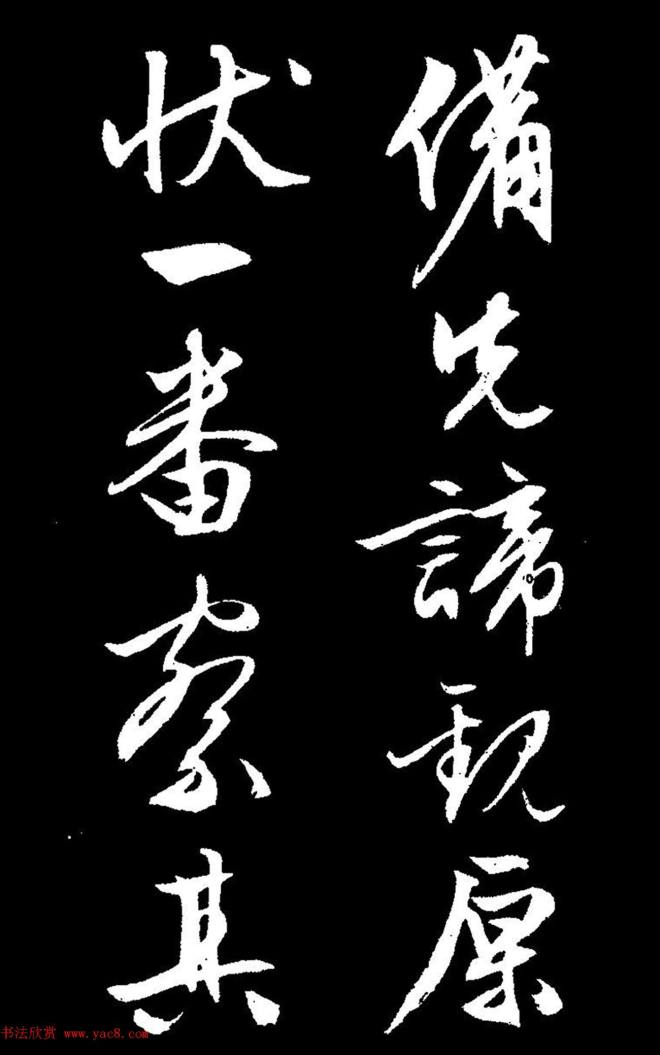 備先諦觀原
狀一番察其
书法欣赏 www.yac8.com